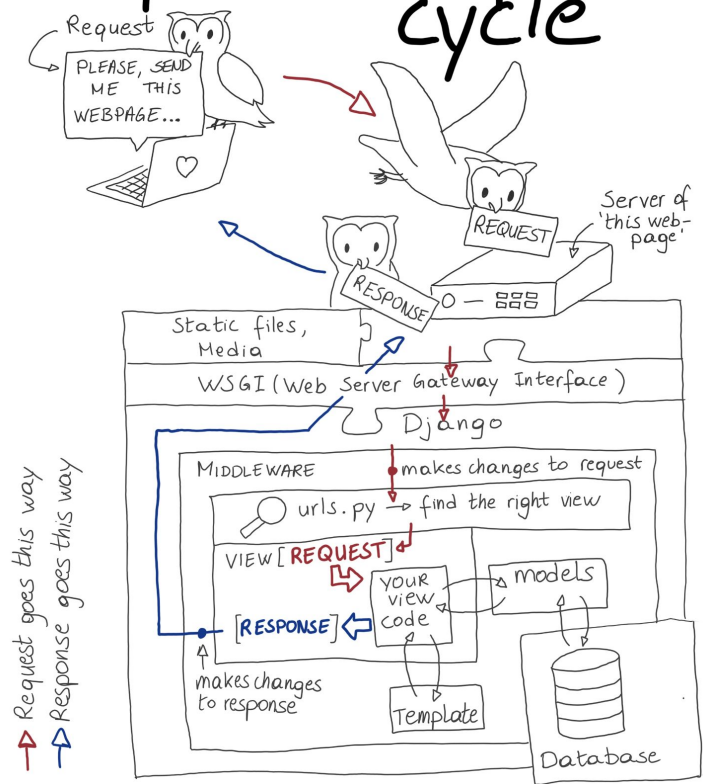 cycle
Request
PLEASE, SEND
ME THIS
WEBPAGE...
REQUEST
Server of
'this web-
page'
RESPONSE
Static files,
Media
WSGI (Web Server Gateway Interface)
Django
MIDDLEWARE
makes changes to request
urls.py → find the right view
VIEW [REQUEST]
YOUR
view
code
models
[RESPONSE]
makes changes
to response
Template
Database
Request goes this way
Response goes this way